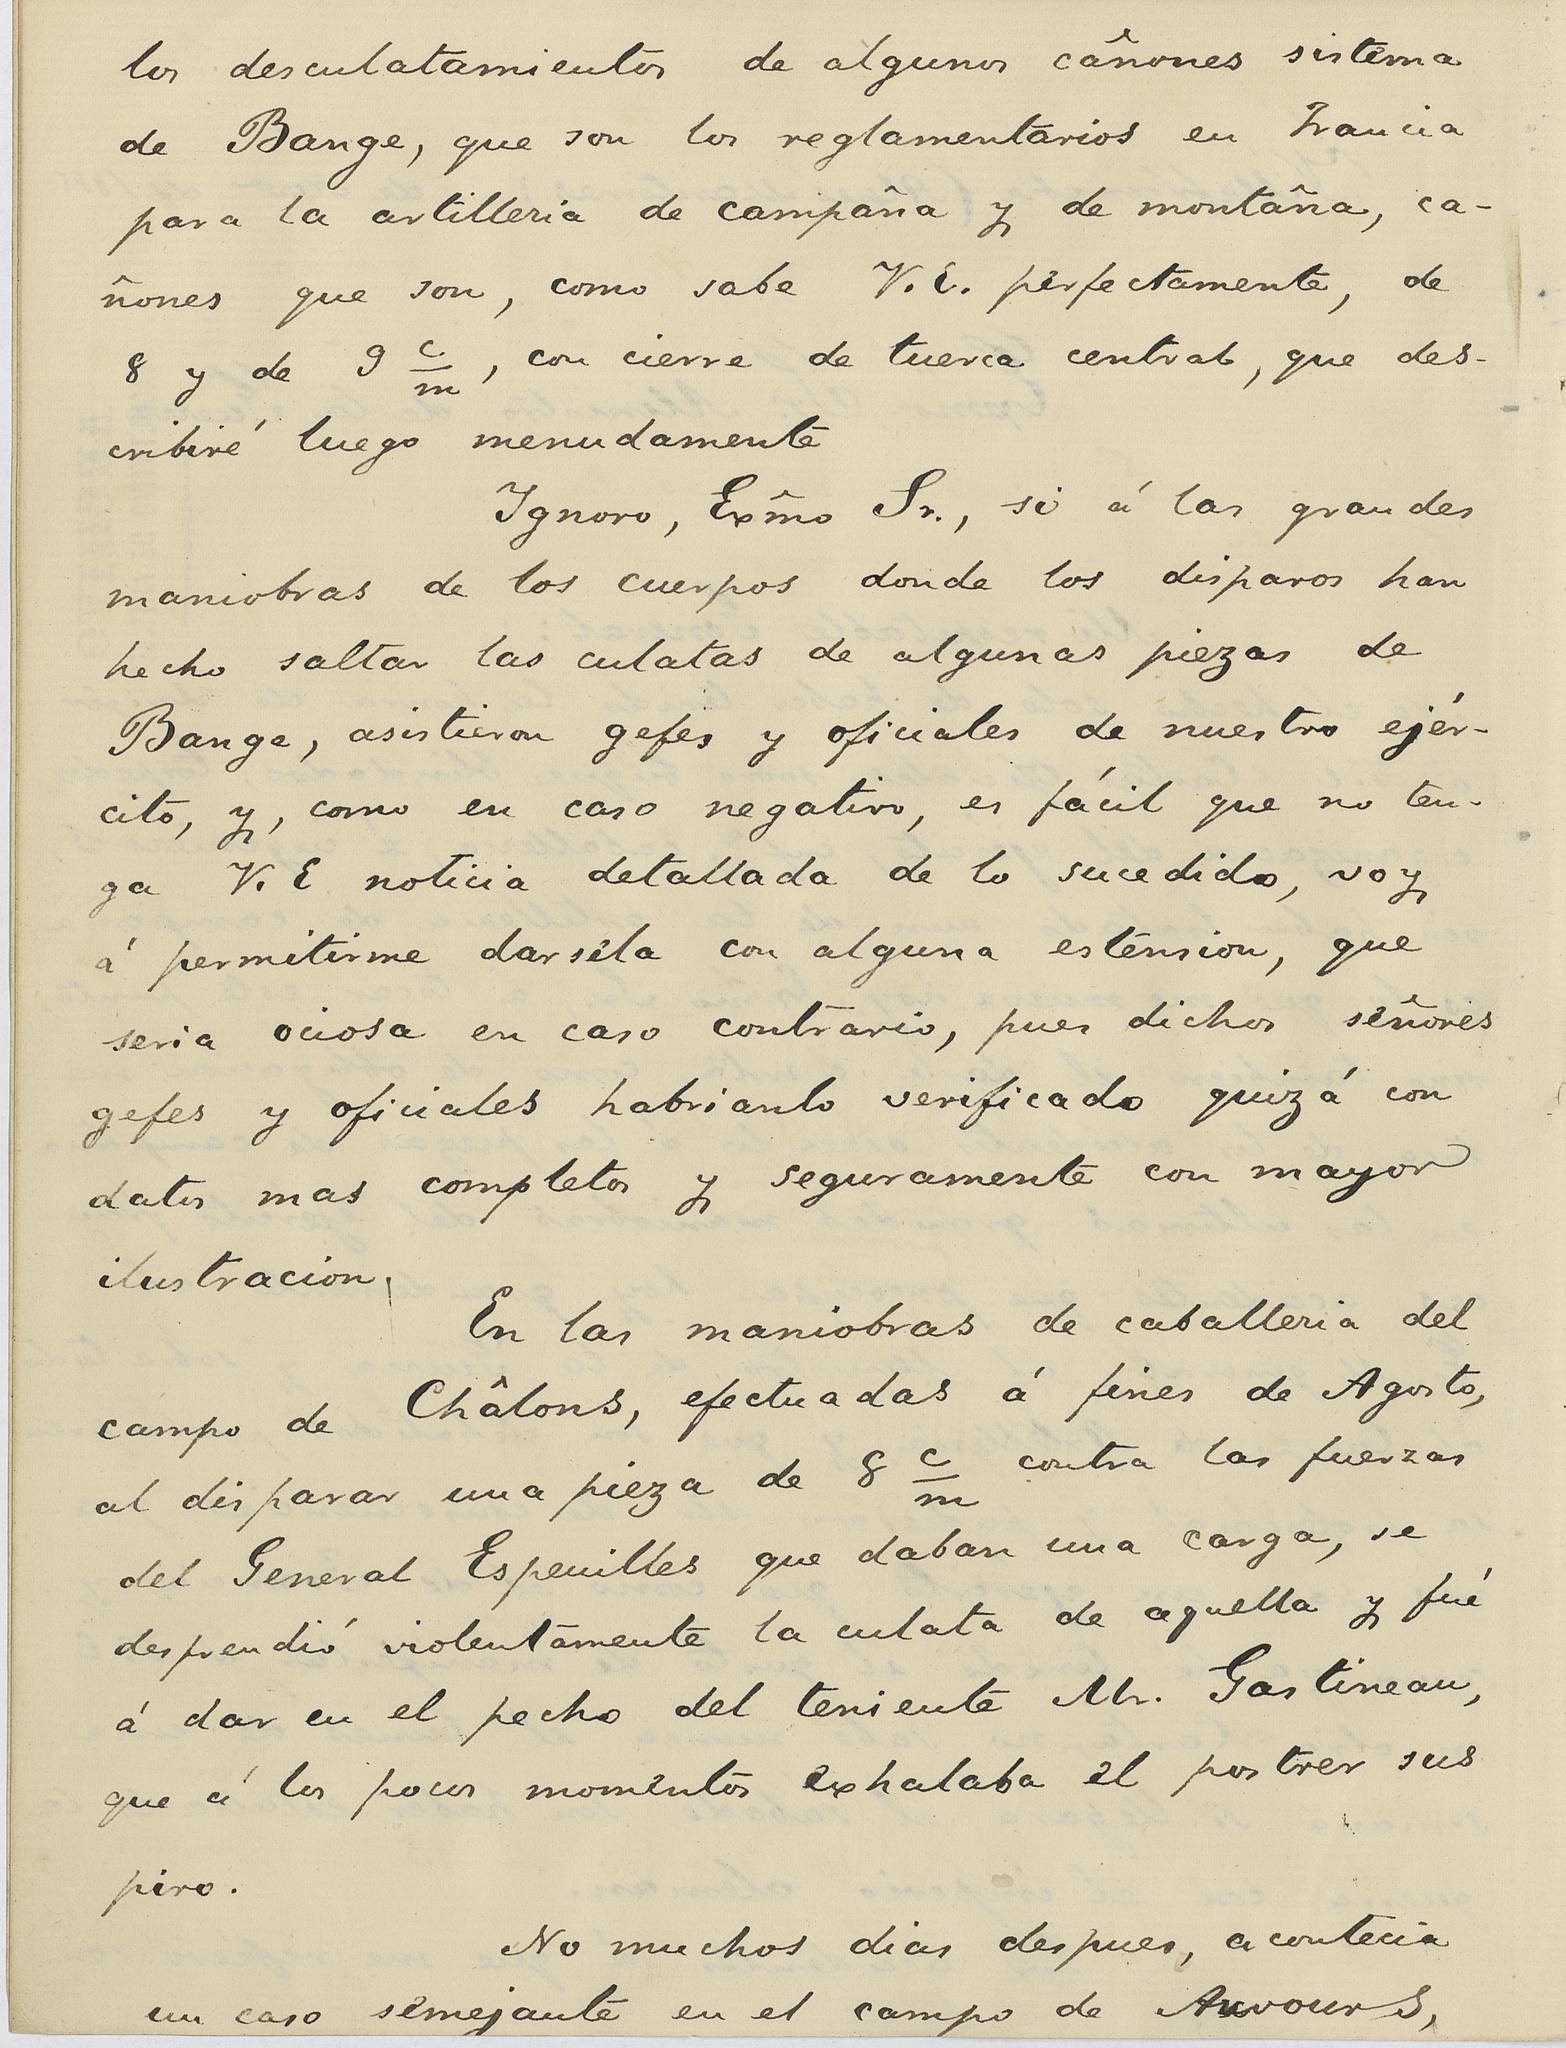 los desculatamientos de algunos cañones sistema
de Bange, que son los reglamentarios en Francia
para la artilleria de campaña y de montaña, ca-
ñones que son, como sabe V.E. perfectamente, de
8 y de 9 c/m, con cierre de tuerca central, que des-
cribiré luego menudamente
Ignoro, Exm̃o Sr., si á las grandes
maniobras de los cuerpos donde los disparos han
hecho saltar las culatas de algunas piezas de
Bange, asistieron gefes y oficiales de nuestro ejér-
cito, y, como en caso negativo, es fácil que no ten-
ga V. E noticia detallada de lo sucedido, voy
á permitirme darsela con alguna estension, que
seria ociosa en caso contrario, pues dichos señores
gefes y oficiales habrianlo verificado quizá con
datos mas completos y seguramente con mayor
ilustracion.
En las maniobras de caballeria del
campo de Châlons, efectuadas á fines de Agosto,
al disparar una pieza de 8 c/m contra las fuerzas
del General Espeuilles que daban una carga, se
desprendió violentamente la culata de aquella y fué
á dar en el pecho del teniente Mr. Gastineau,
que á los pocos momentos exhalaba el postrer sus
piro.
No muchos dias despues, acontecia
un caso semejante en el campo de Auvours,